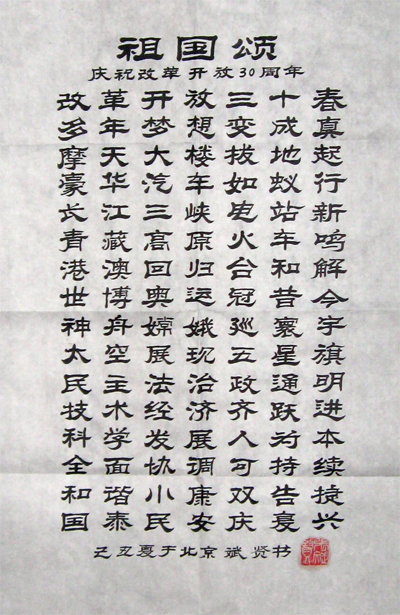 祖国颂
庆祝改革开放30周年
改革开放三十春
多年梦想变成真
摩天大楼拔地起
豪华汽车如蚁行
长江三峡电站新
青藏高原火车鸣
港澳回归台和解
世博奥运冠昔今
神舟嫦娥廵寰宇
太空展现五星旗
民主法治政通明
技术经济齐跃进
科学发展人为本
全面协调可持续
和谐小康双告捷
国泰民安庆复兴
己丑夏于北京斌贤书